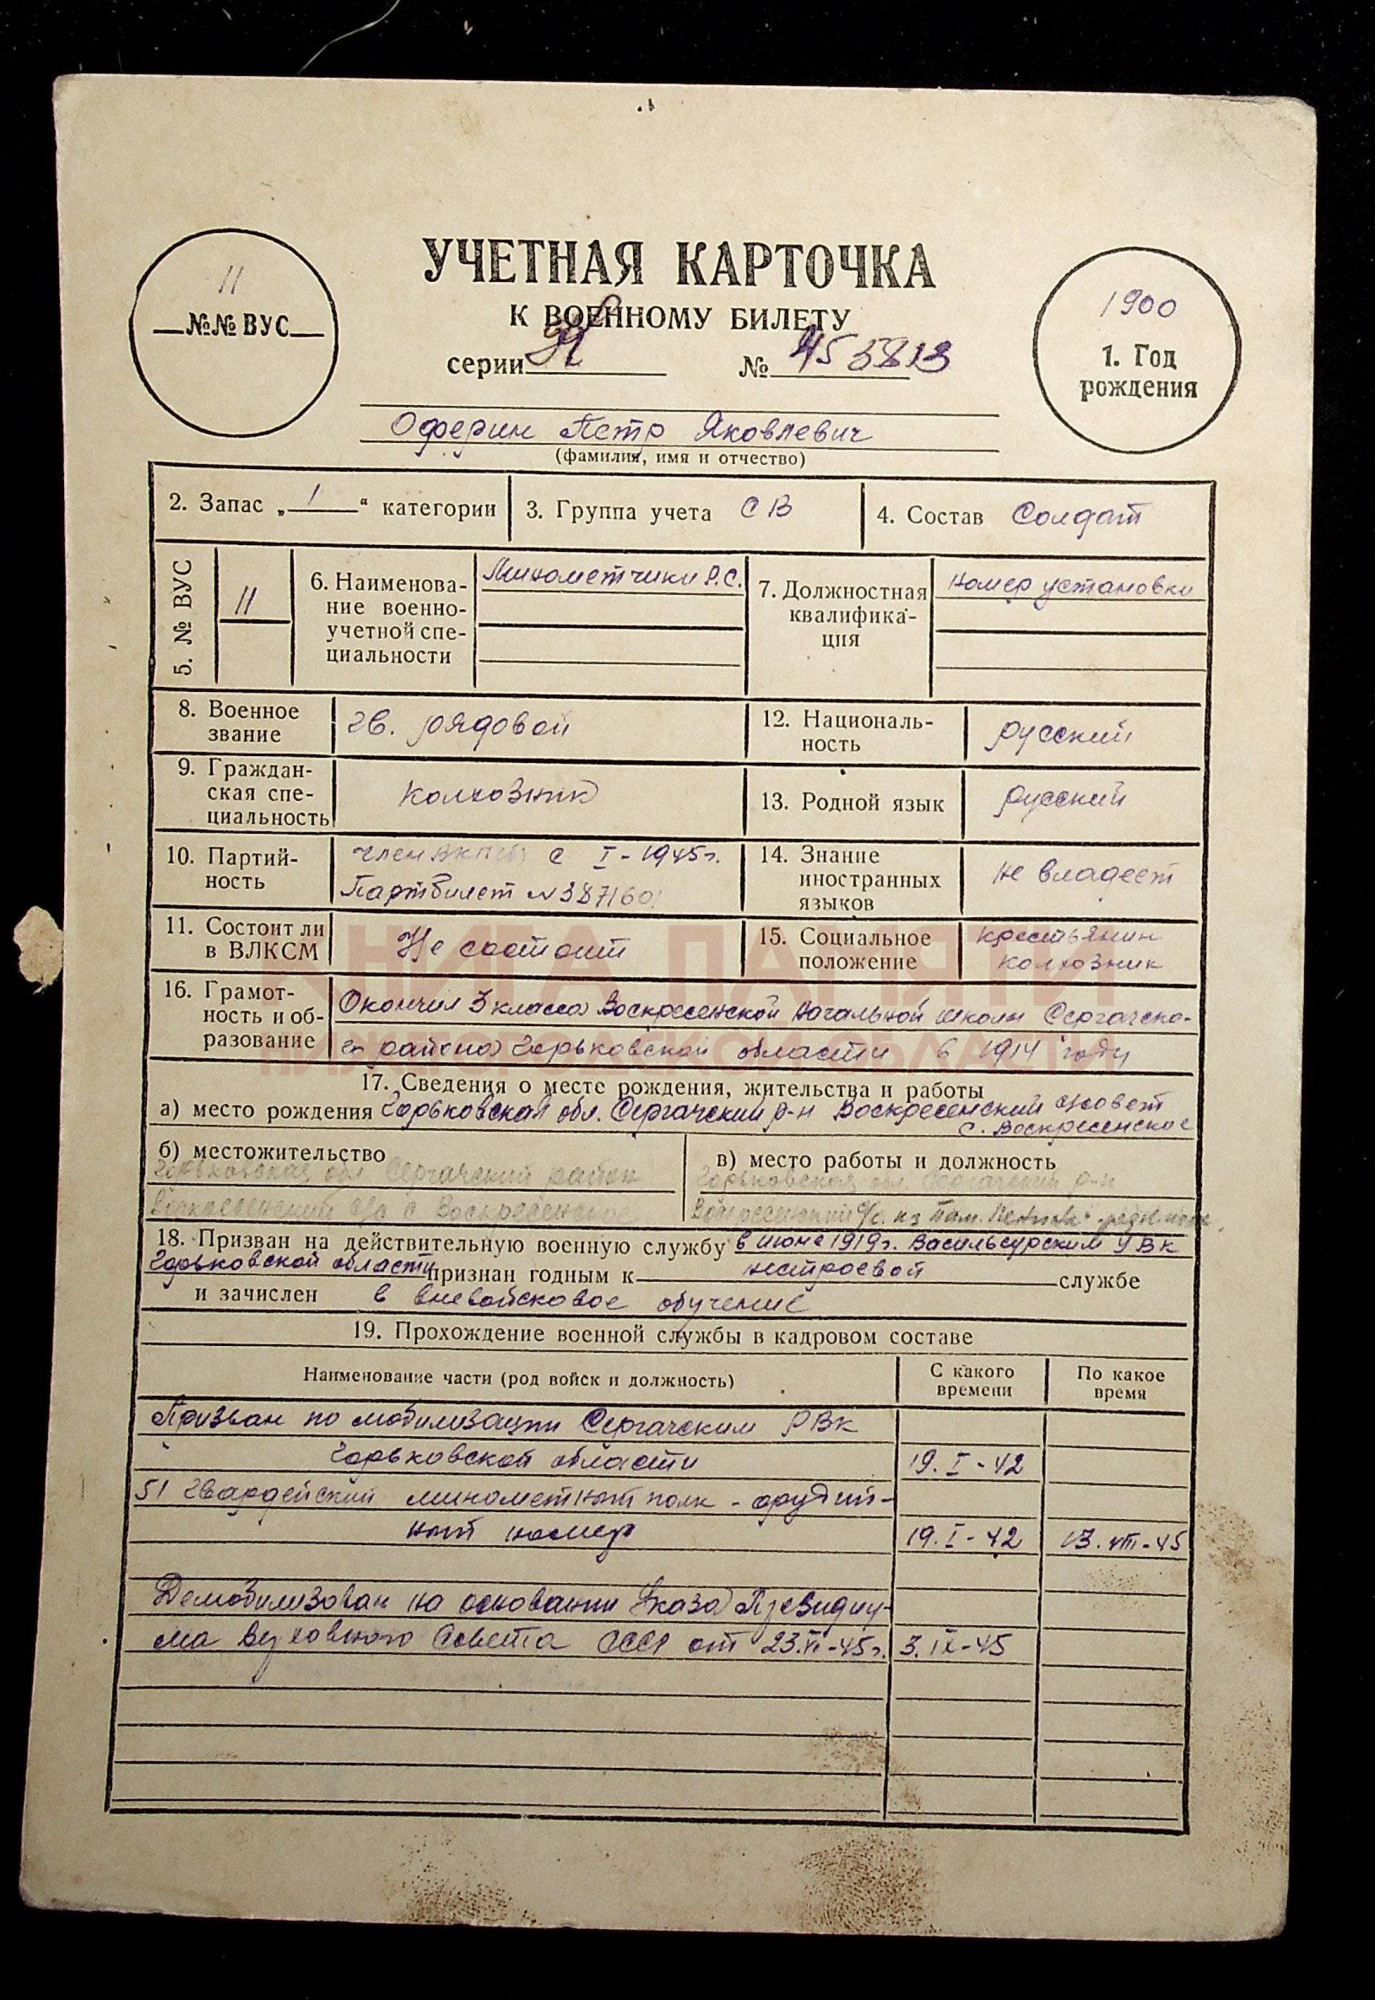 УЧЕТНАЯ КАРТОЧКА
К ВОЕННОМУ БИЛЕТУ
серии № 455813
11
№№ ВУС
1900
1. Год
рождения
Оферин Петр Яковлевич
(фамилия, имя и отчество)
2. Запас „ 1 “ категории 3. Группа учета СВ 4. Состав Солдат
5. № ВУС 11
6. Наименова-
ние военно-
учетной спе-
циальности
Минометчики Р.С.
7. Должностная
квалифика-
ция
номер установки
8. Военное
звание
гв. рядовой
12. Националь-
ность
русский
9. Граждан-
ская спе-
циальность
колхозник
13. Родной язык русский
10. Партий-
ность
член ВКП(б) с I-1945г.
Партбилет N 387160
14. Знание
иностранных
языков
не владеет
11. Состоит ли
в ВЛКСМ
Не состоит
15. Социальное
положение
крестьянин
колхозник
КНИГА ПАМЯТИ
НИЖЕГОРОДСКОЙ ОБЛАСТИ
16. Грамот-
ность и об-
разование
Окончил 3 класса Воскресенской Начальной школы Сергачско-
го района Горьковской области в 1914 году
17. Сведения о месте рождения, жительства и работы
а) место рождения Горьковская обл. Сергачский р-н Воскресенский с/совет
с. Воскресенское
б) местожительство
Горьковская обл Сергачский район
Воскресенский с/с с Воскресенское
в) место работы и должность
Горьковская обл. Сергачский р-н
Воскресенский с/с. к-з Пам. Ленина
18. Призван на действительную военную службу в июне 1919г. Васильсурским УВК
Горьковской области признан годным к нестроевой службе
и зачислен в вневойсковое обучение
19. Прохождение военной службы в кадровом составе
Наименование части (род войск и должность)
С какого
времени
По какое
время
Призван по мобилизации Сергачским РВК
Горьковской области 19. I-42
51 Гвардейский минометный полк - орудий-
ный номер 19. I-42 13. VIII-45
Демобилизован на основании Указа Президиу-
ма Верховного Совета СССР от 23.VI-45г. 3. IX-45